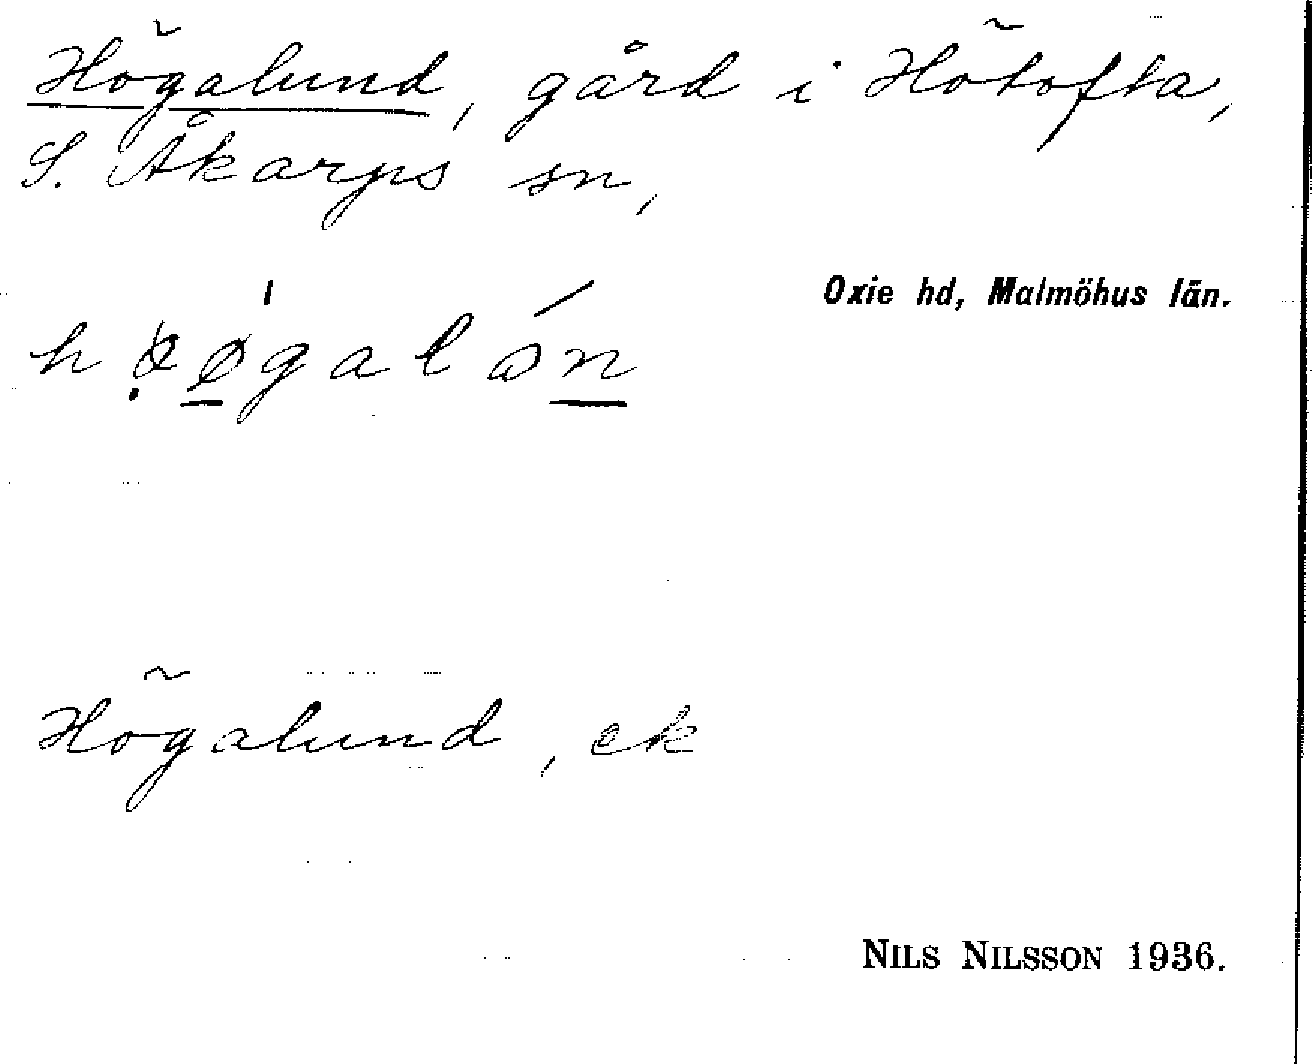 Högalund, gård i Hötofta,
S. Åkarps sn,
Oxie hd, Malmöhus län.
Högalund, ek
NILS NILSSON 1936.